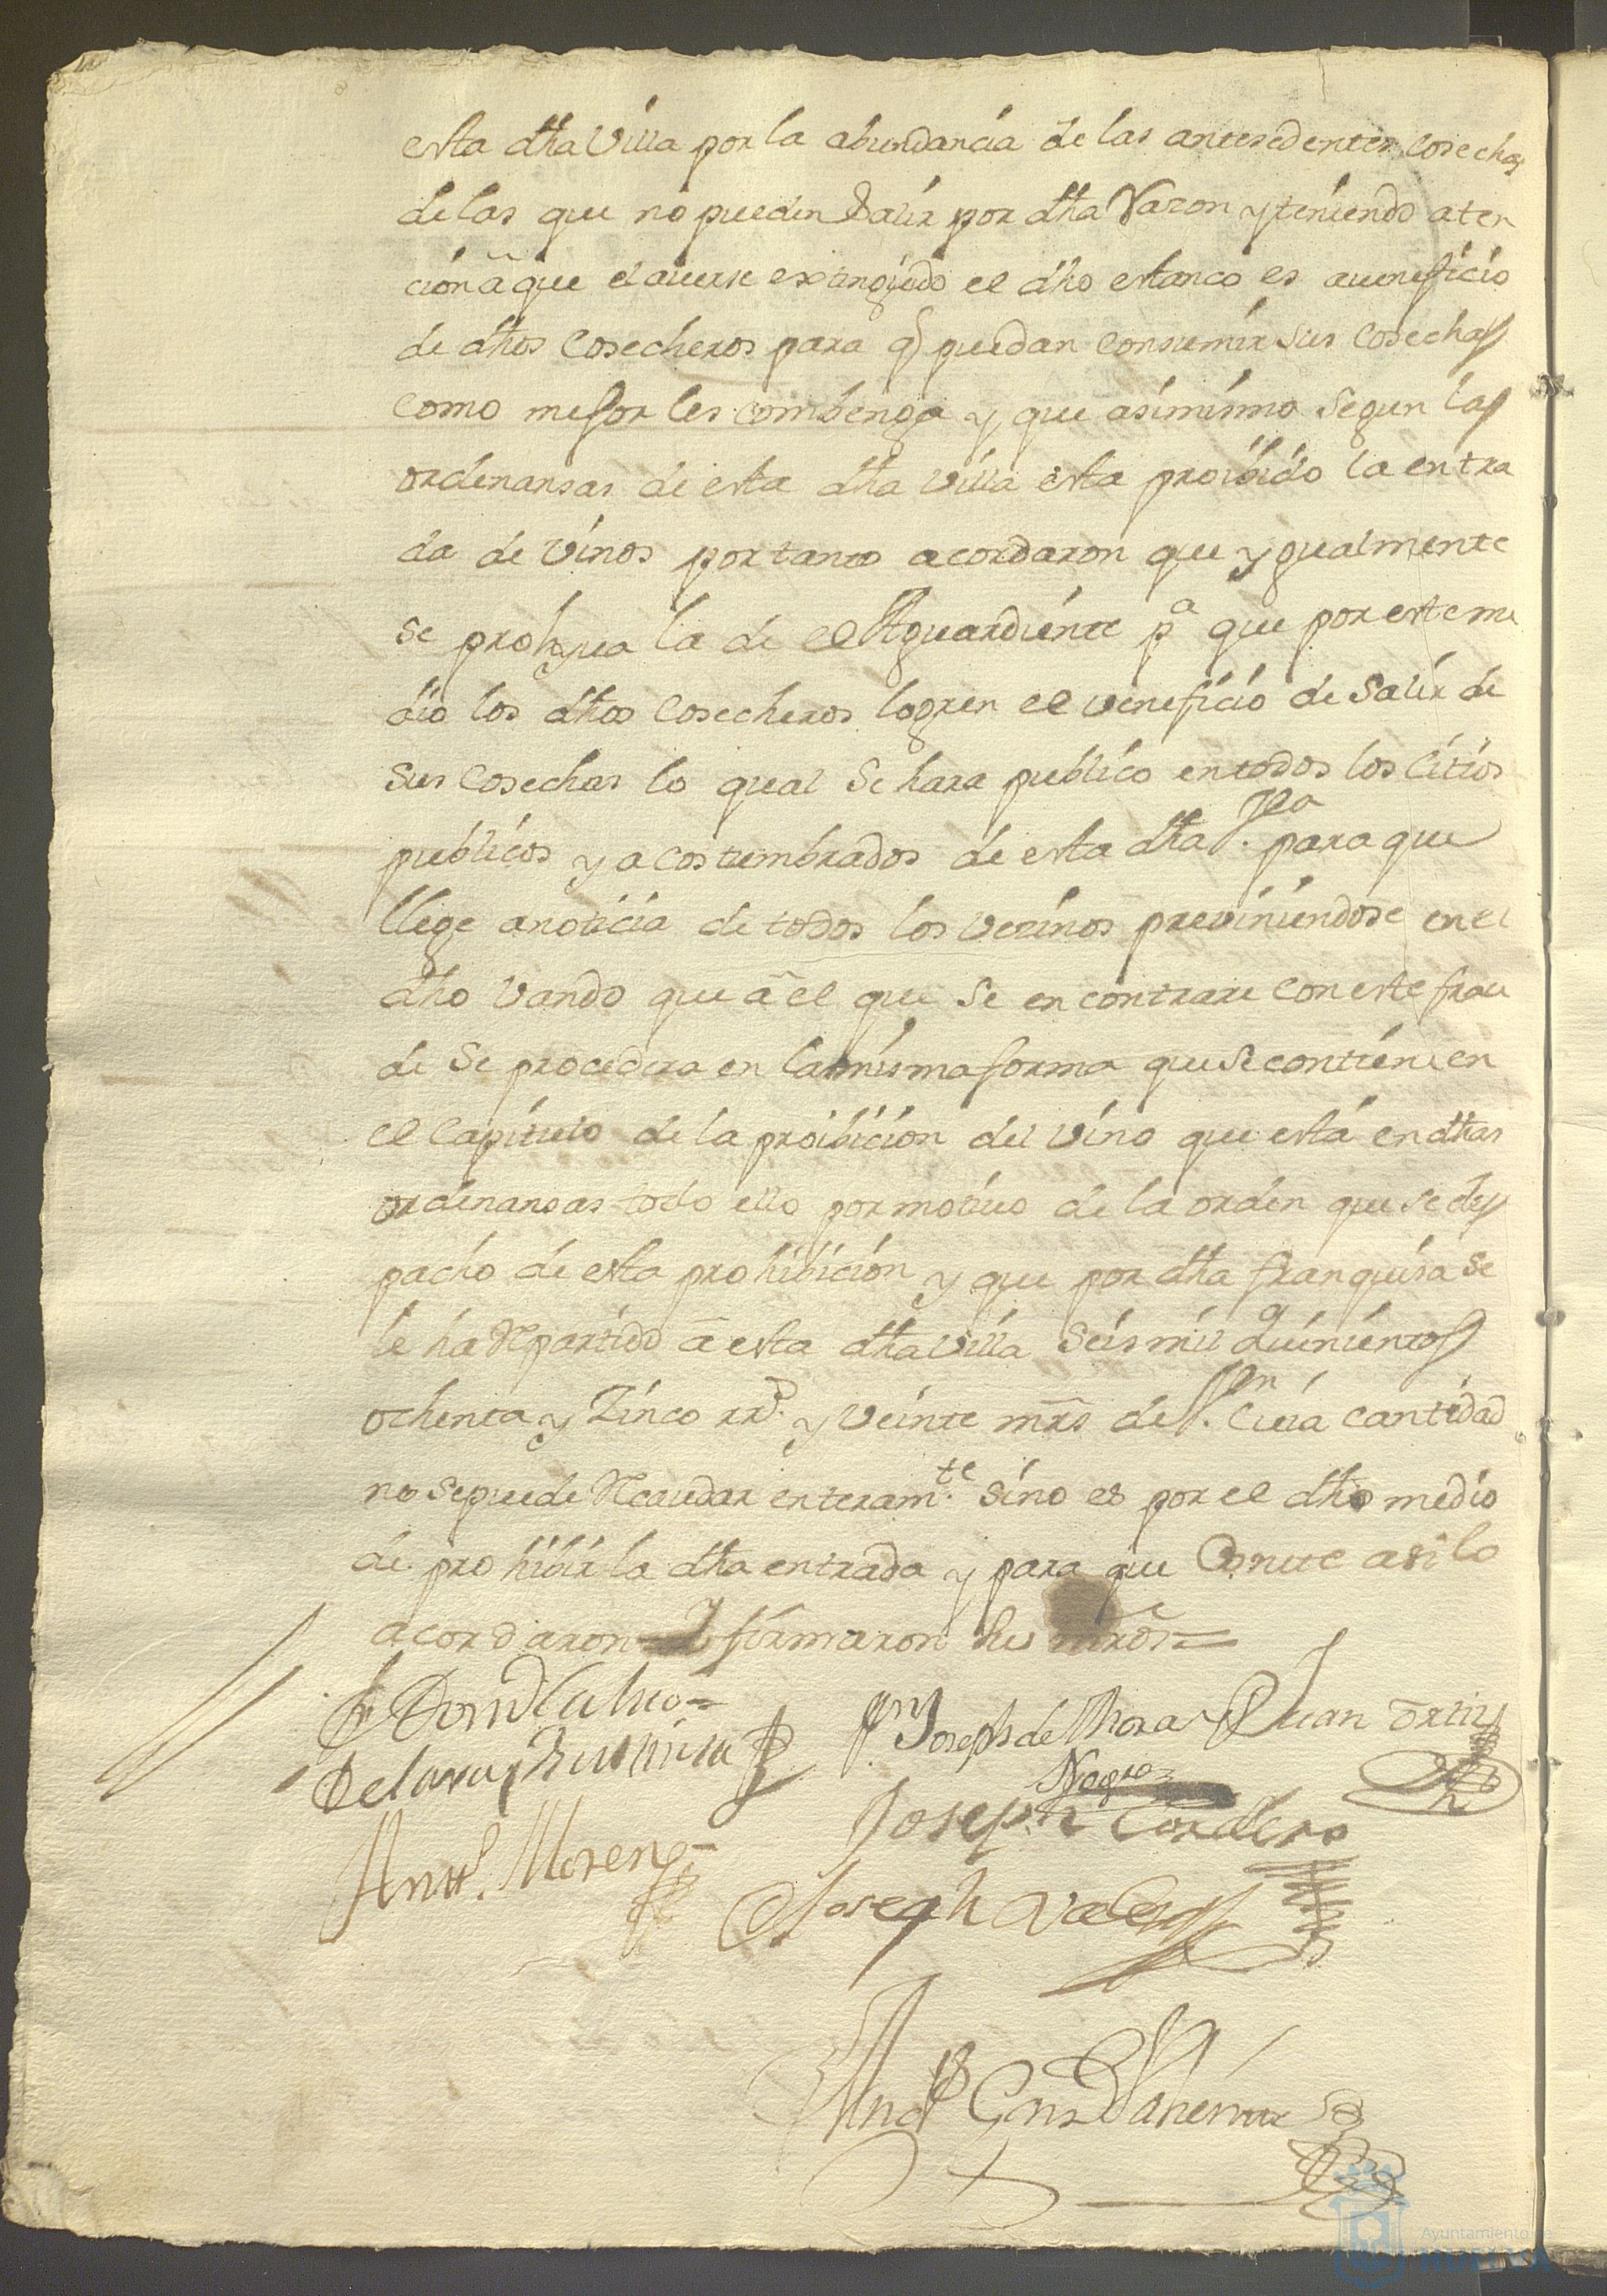 esta dha Villa por la abundancia de las antesedentes cosechas
de las que no pueden Salir por dha Razon y teniendo aten
cion a que el auerse extinguido el dho estanco es aueneficio
de dhos Cosecheros para q puedan consumir sus cosechas
como mejor les combenga y que asimismo Segun las
ordenansas de esta dha Villa esta proibido la entra
da de Vinos por tanto acordaron que ygualmente
se prohyua la de el Aguardiente pa que por este me
dio los dhos Cosecheros logren el veneficio de Salir de
Sus Cosechas lo qual Se hara publico en todos los Citios
publicos y acostumbrados de esta dha Va para que
llege a noticia de todos los Vezinos previniendose en el
dho Vando que a el que Se encontrare con este frau
de Se procedera en la misma forma que Se contiene en
el Capitulo de la proibicion del Vino que está en dhas
ordenansas todo ello por motivo de la orden que se des
pacho de esta prohibicion y que por dha franquisa Se
le ha Repartido a esta dha Villa Seis mil Quinientos
ochenta y Zinco rrs. y Veinte mrs de Vn. Cuia cantidad
no Se puede Recaudar enteramte. Sino es por el dho medio
de prohibir la dha entrada y para que Conste asi lo
acordaron = Y firmaron sus mrds =
Joseph de Mora Juan Ortiz
Negro
Joseph Cordero
Antto. Moreno
Joseph